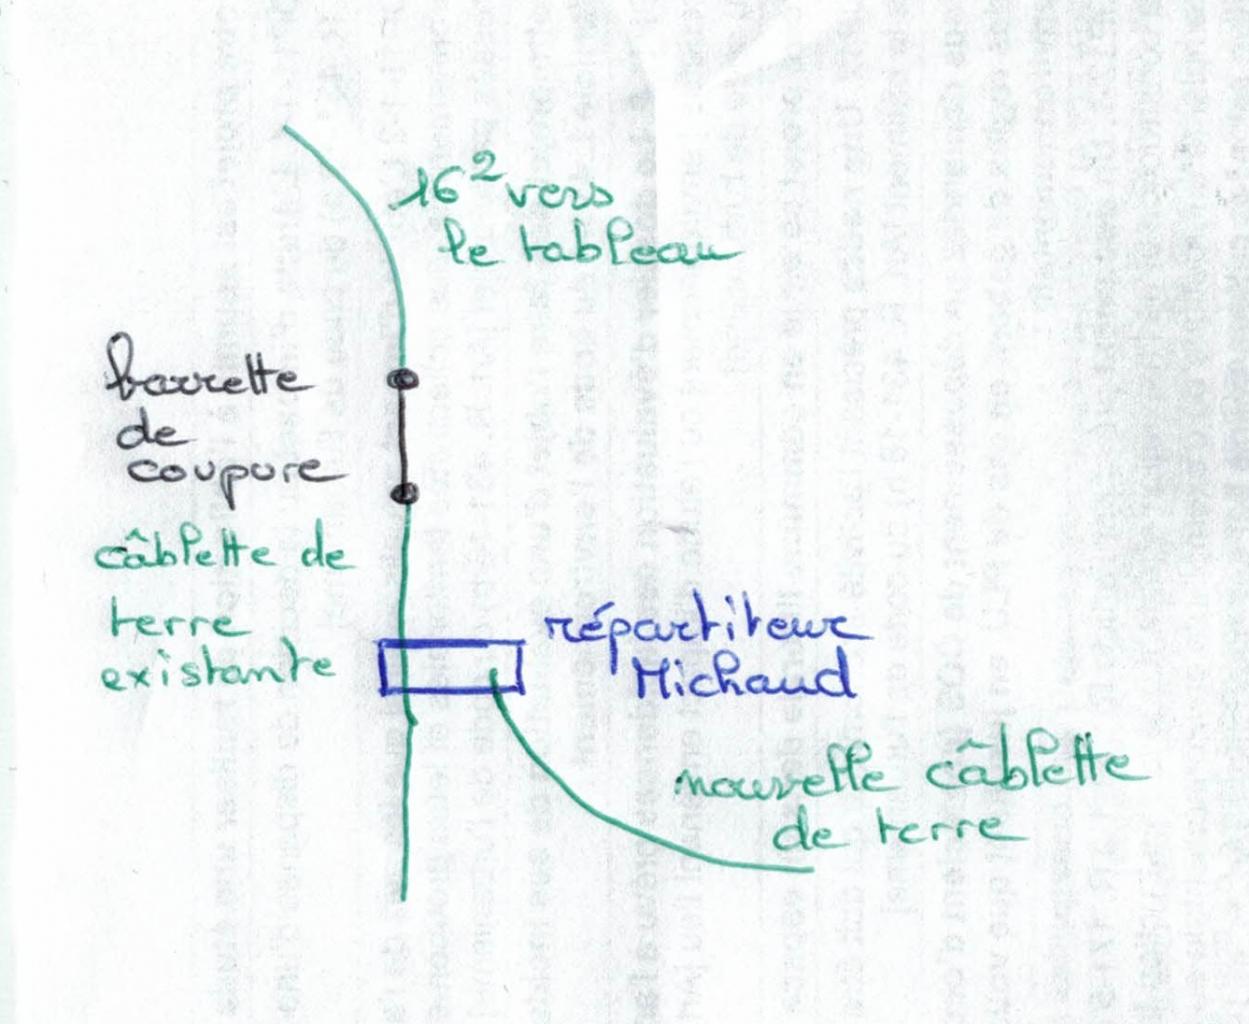 16² vers
le tableau
barrette
de
coupure
câblette de
terre
existante
répartiteur
Michaud
nouvelle câblette
de terre